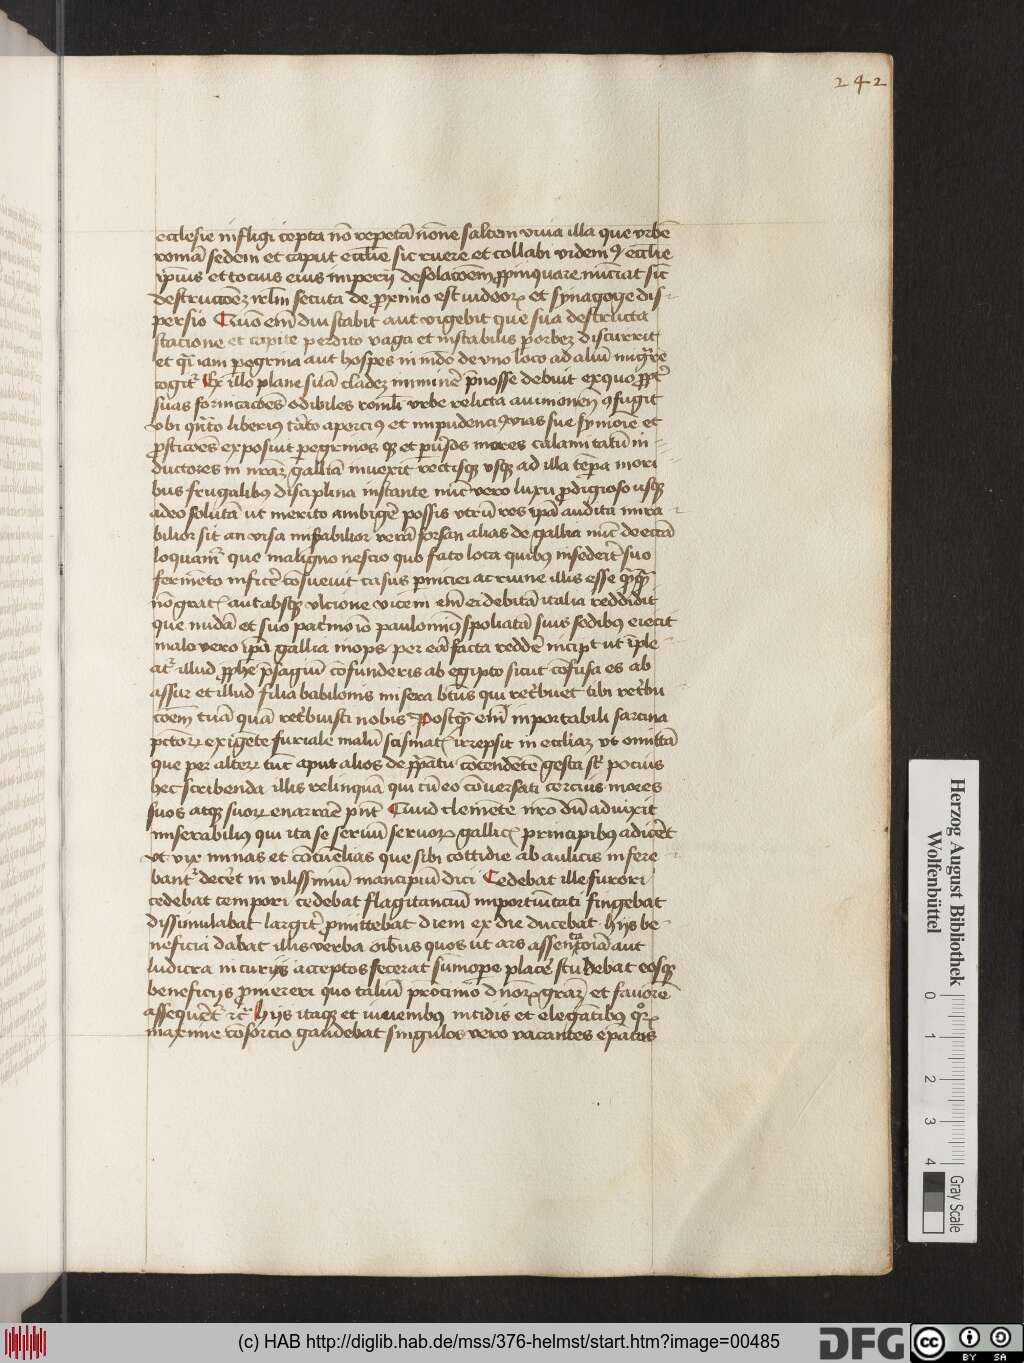 242
ecclesie infligi cepta nō repetā nōne saltem vnia illa que vrbē
romā sedem et caput ecclīe sic ruere et collabi videmꝰ ecclīe
ip̄ius et tocius eius imperij desolacoēm ꝓpinquare nūciat sic
destruccoēz irl̄m secuta de ꝓximo est iudeoꝝ et synagoge dis-
persio Quō em̄ diu stabit aut vigebit que sua destructa
stacione et capite perdito vaga et instabilis ꝑ orbez discurrit
et qͣi iam peg̃rina aut hospes in mūdo de vno loco ad aliū mig̃re
cogitᷣ Ex illo plane sūam cladez imminē p̄nosse debuit ex quo ꝓpt̉
suas fornicacoēs odibiles romūli vrbe relicta auinionem ꝯfugit
vbi qn̄to liberiꝰ tāto aporciꝰ et impudenciꝰ vias sue symoīe et
ꝓsticoēs exposuit peg̃rinosqꝫ et ꝑūsos mores calamitatū in-
ductores in nr̄az galliā inuexit rectisqꝫ vsqꝫ ad illa tēpa mori
bus frugalibꝰ disciplina instante nūc vero luxu ꝓdigioso usqꝫ
adeo solutā ut merito ambigē possis vtrū res ip̄a auditu mira-
bilior sit an visa mis̄abilior verā forsan alias de gallia nūc de eccīa
loquamᷣ que maligno nescio quo fato loca quibꝰ insederit suo
fermēto inficē cōsueuit casus ꝑniciei ac ruine illis esse qͥ qͣꝫ
nō gratꝭ aut absqꝫ vlcione vicem em̄ ei debitā italia reddidit
que nudā et suo pat̉mōio paulominꝰ spoliatā suis sedibꝰ eiecit
malo vero ip̄a gallia inops per eā facta reddē incipit ut īple
atᷣ illud ꝓph̄e p̄sagiū cōfunderis ab egipto sicut cōfusa es ab
assur et illud filia babilonis misera bt̄us qui ret̉buet tibi ret̉bu
coēm tuā quā ret̉buisti nobis Postqͣꝫ em̄ inportabili sarcina
pc̄torꝝ exigēte furiale malū scismatꝭ irrepsit in eccliaz vt omittā
que per alterꝝ tūc aput alios de ꝓp̄atu cōtendēte gesta sūt pocius
hec scribenda illis relinquā qui cū eo cōuersati cercius mores
suos atqꝫ suorꝝ enarrāē pn̄t Quid clemēte nr̄o dū aduixit
miserabilius qui ita se seruū seruoꝝ gallicꝭ principibꝰ adicēt
vt vix minas et cōtūelias que sibi cottidie ab aulicis infere-
bantᷣ decēt in vilissimū mancipiū dici Cedebat ille furori
cedebat tempori cedebat flagitanciū importūitati fingebat
dissimulabat largitᷣ ꝓmittebat diem ex die ducebat hijs be-
neficia dabat illis verba oībus quos ut ars assentatoīa aut
ludicra in curijs acceptos fecerat sūmope placē studebat eosqꝫ
beneficijs ꝓmereri quo taliū procinio dn̄oꝝ grāz et fauorē
assequēt̉ ic̄ᷣ Hijs itaqꝫ et iuuenibꝰ nitidis et elegātibꝰ qͦꝝ
maxime cōsorcio gaudebat singulos vero vacantes ep̄atus
Herzog August Bibliothek
Wolfenbüttel
0
1
2
3
4
Gray Scale
(c) HAB http://diglib.hab.de/mss/376-helmst/start.htm?image=00485
DFG
cc
BY SA